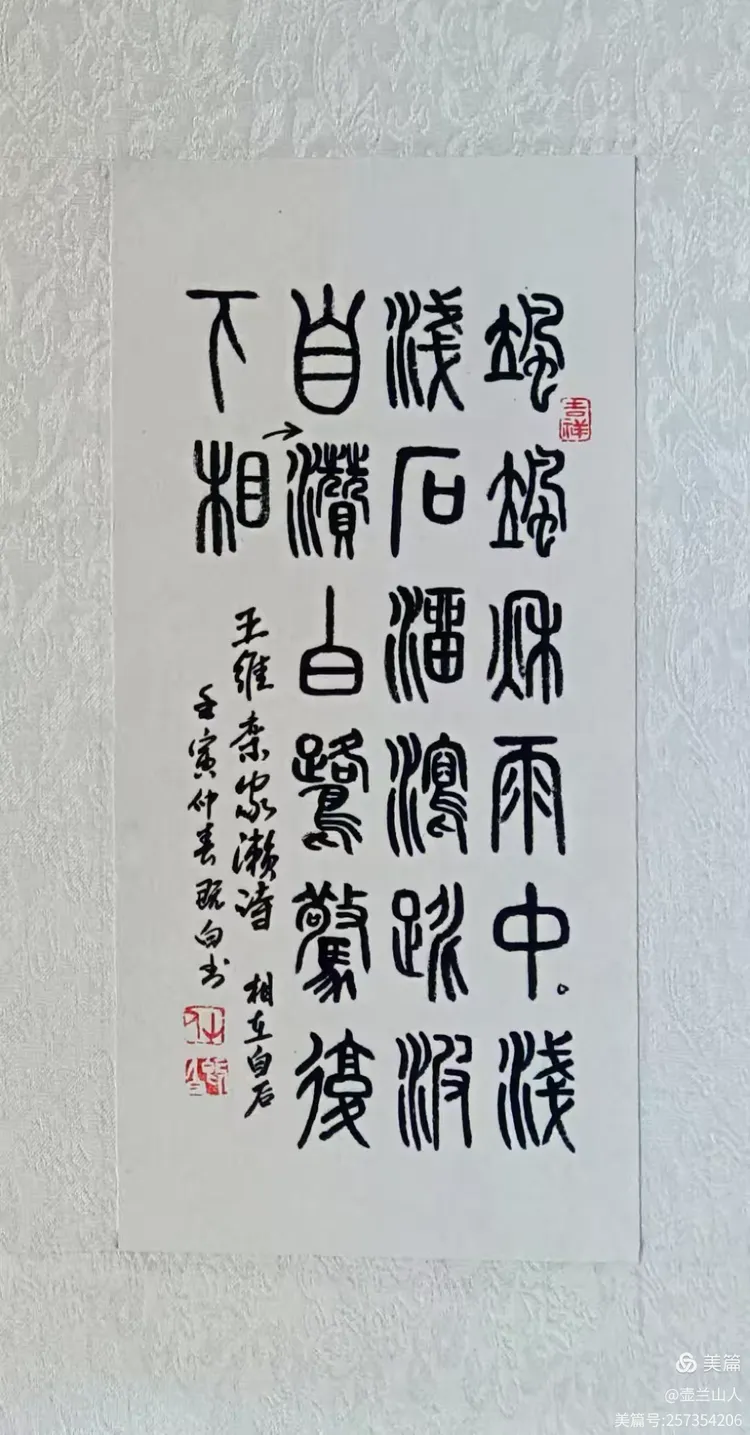 颯颯秋雨中。淺
淺石溜瀉跳波
自灒白鷺驚復
下相
王維欒家瀨詩 相在自后
壬寅仲春既白书
吉祥
美篇
@壶兰山人
美篇号:257354206